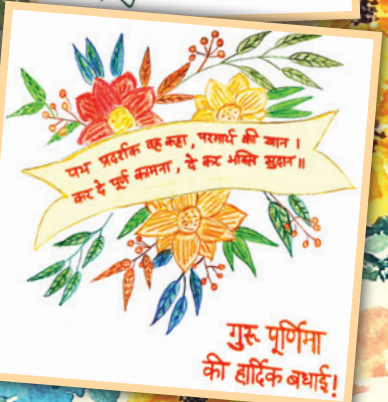 पथ प्रदर्शक वह कहा, परमार्थ की खान ।
कर दे पूर्ण कामना, दे कर भक्ति सुदान ॥
गुरू पूर्णिमा
की हार्दिक बधाई!